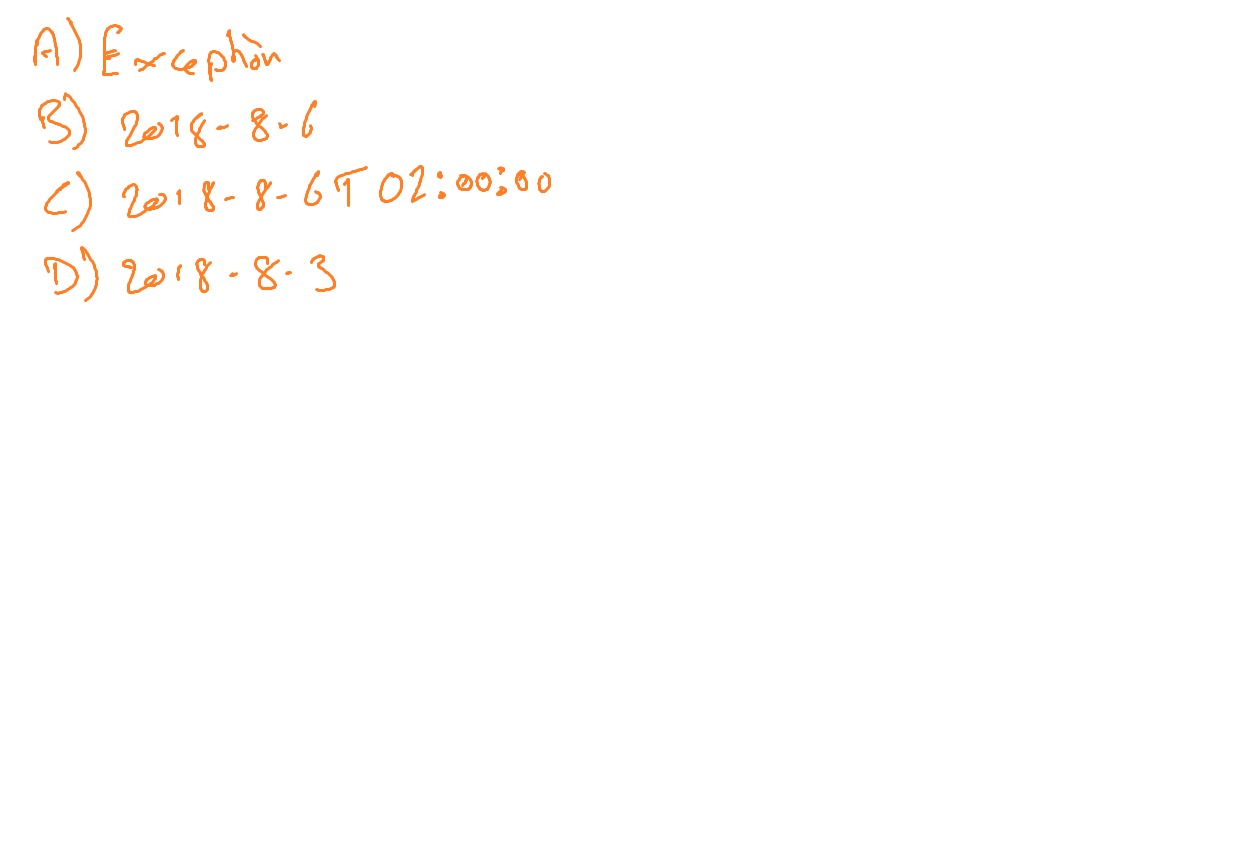 A) Exception
B) 2018-8-6
C) 2018-8-6T02:00:00
D) 2018-8-3